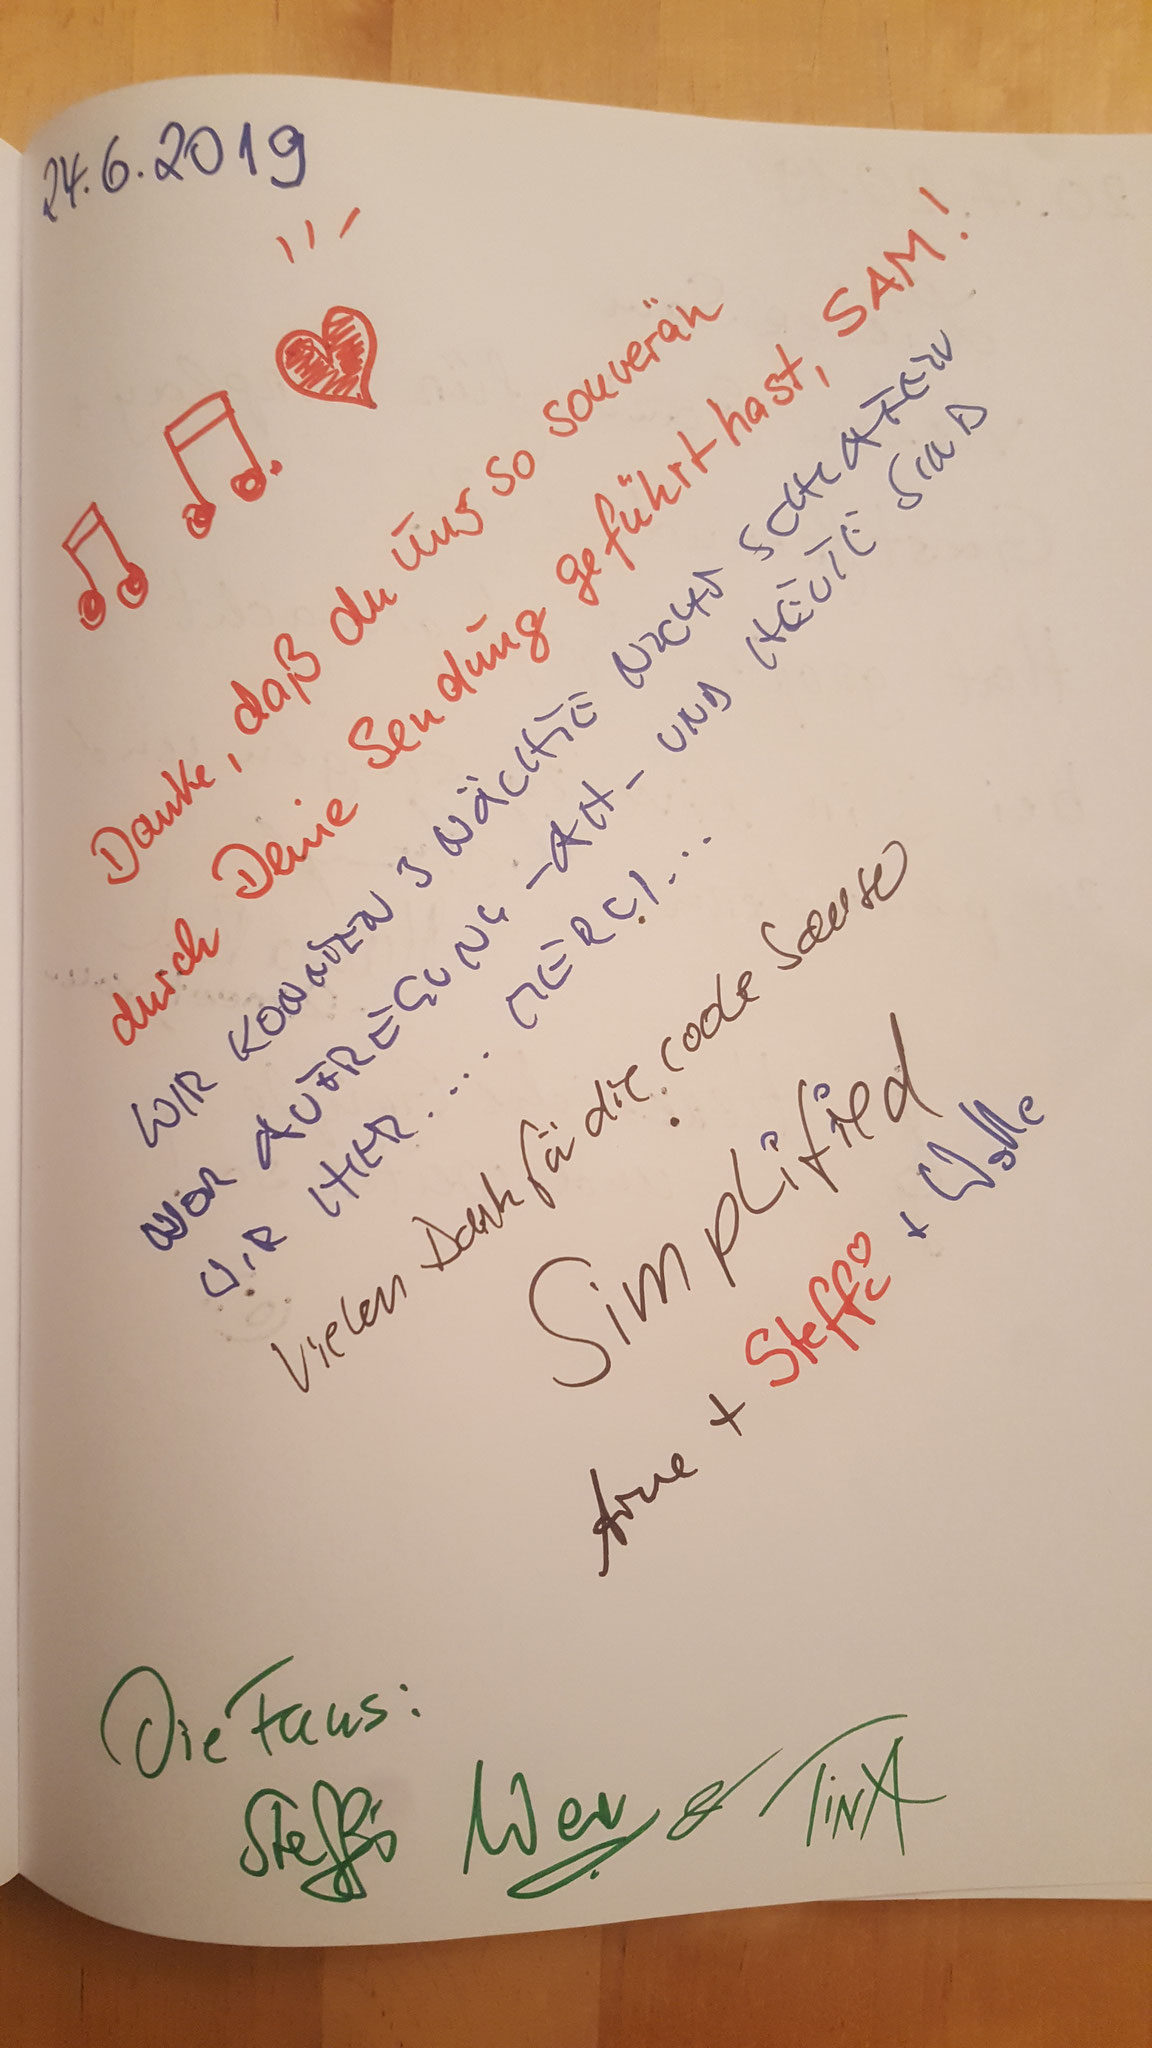 24.6.2019
Danke, daß du uns so souverän
durch Deine Sendung geführt hast, SAM!
WIR KONNTEN 3 NÄCHTE NICHT SCHLAFEN
VOR AUFREGUNG -AH- UND HEUTE SIND
WIR HIER.... MERCI...
Vielen Dank für die coole Sause
Simplified
Arne + Steffi + Wolle
Die Fans:
Steffi & TINA